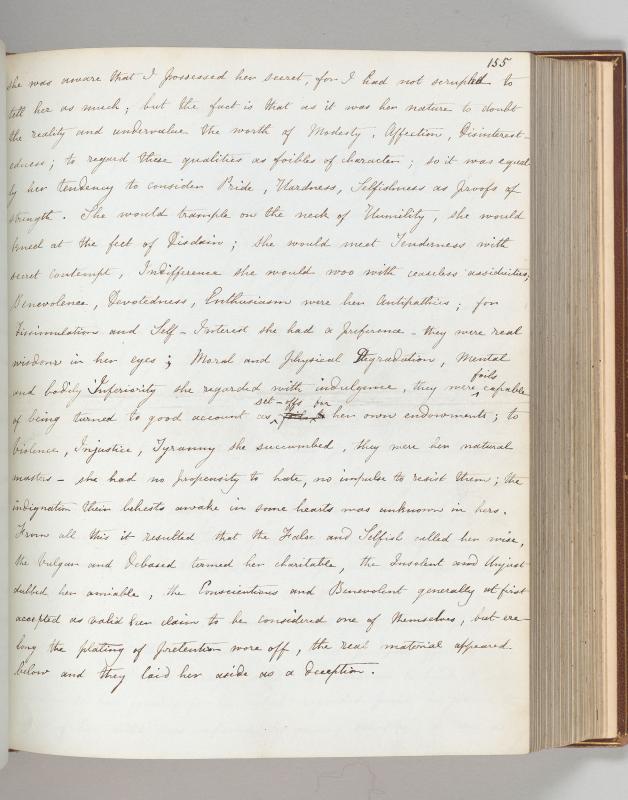 155
she was aware that I possessed her secret, for I had not scrupled to
tell her as much; but the fact is that as it was her nature to doubt
the reality and undervalue the worth of Modesty, Affection, Disinterest-
edness; to regard these qualities as foibles of character; so it was equal-
ly her tendency to consider Pride, Hardness, Selfishness as proofs of
strength. She would trample on the neck of Humility, she would
kneel at the feet of Disdain; she would meet Tenderness with
secret contempt, Indifference she would woo with ceaseless assiduities;
Benevolence, Devotedness, Enthusiasm were her Antipathies; for
Dissimulation and Self-Interest she had a preference - they were real
wisdom in her eyes; Moral and physical Degradation, Mental
and bodily Inferiority she regarded with indulgence, they were foils capable
of being turned to good account as set-offs for her own endowments; to
Violence, Injustice, Tyranny she succumbed, they were her natural
masters - she had no propensity to hate, no impulse to resist them; the
indignation their behests awake in some hearts was unknown in hers.
From all this it resulted that the False and Selfish called her wise,
the Vulgar and Debased termed her charitable, the Insolent and Unjust
dubbed her amiable, the Conscientious and Benevolent generally at first
accepted as valid her claim to be considered one of themselves, but ere
long the plating of pretention wore off, the real material appeared
below and they laid her aside as a deception.